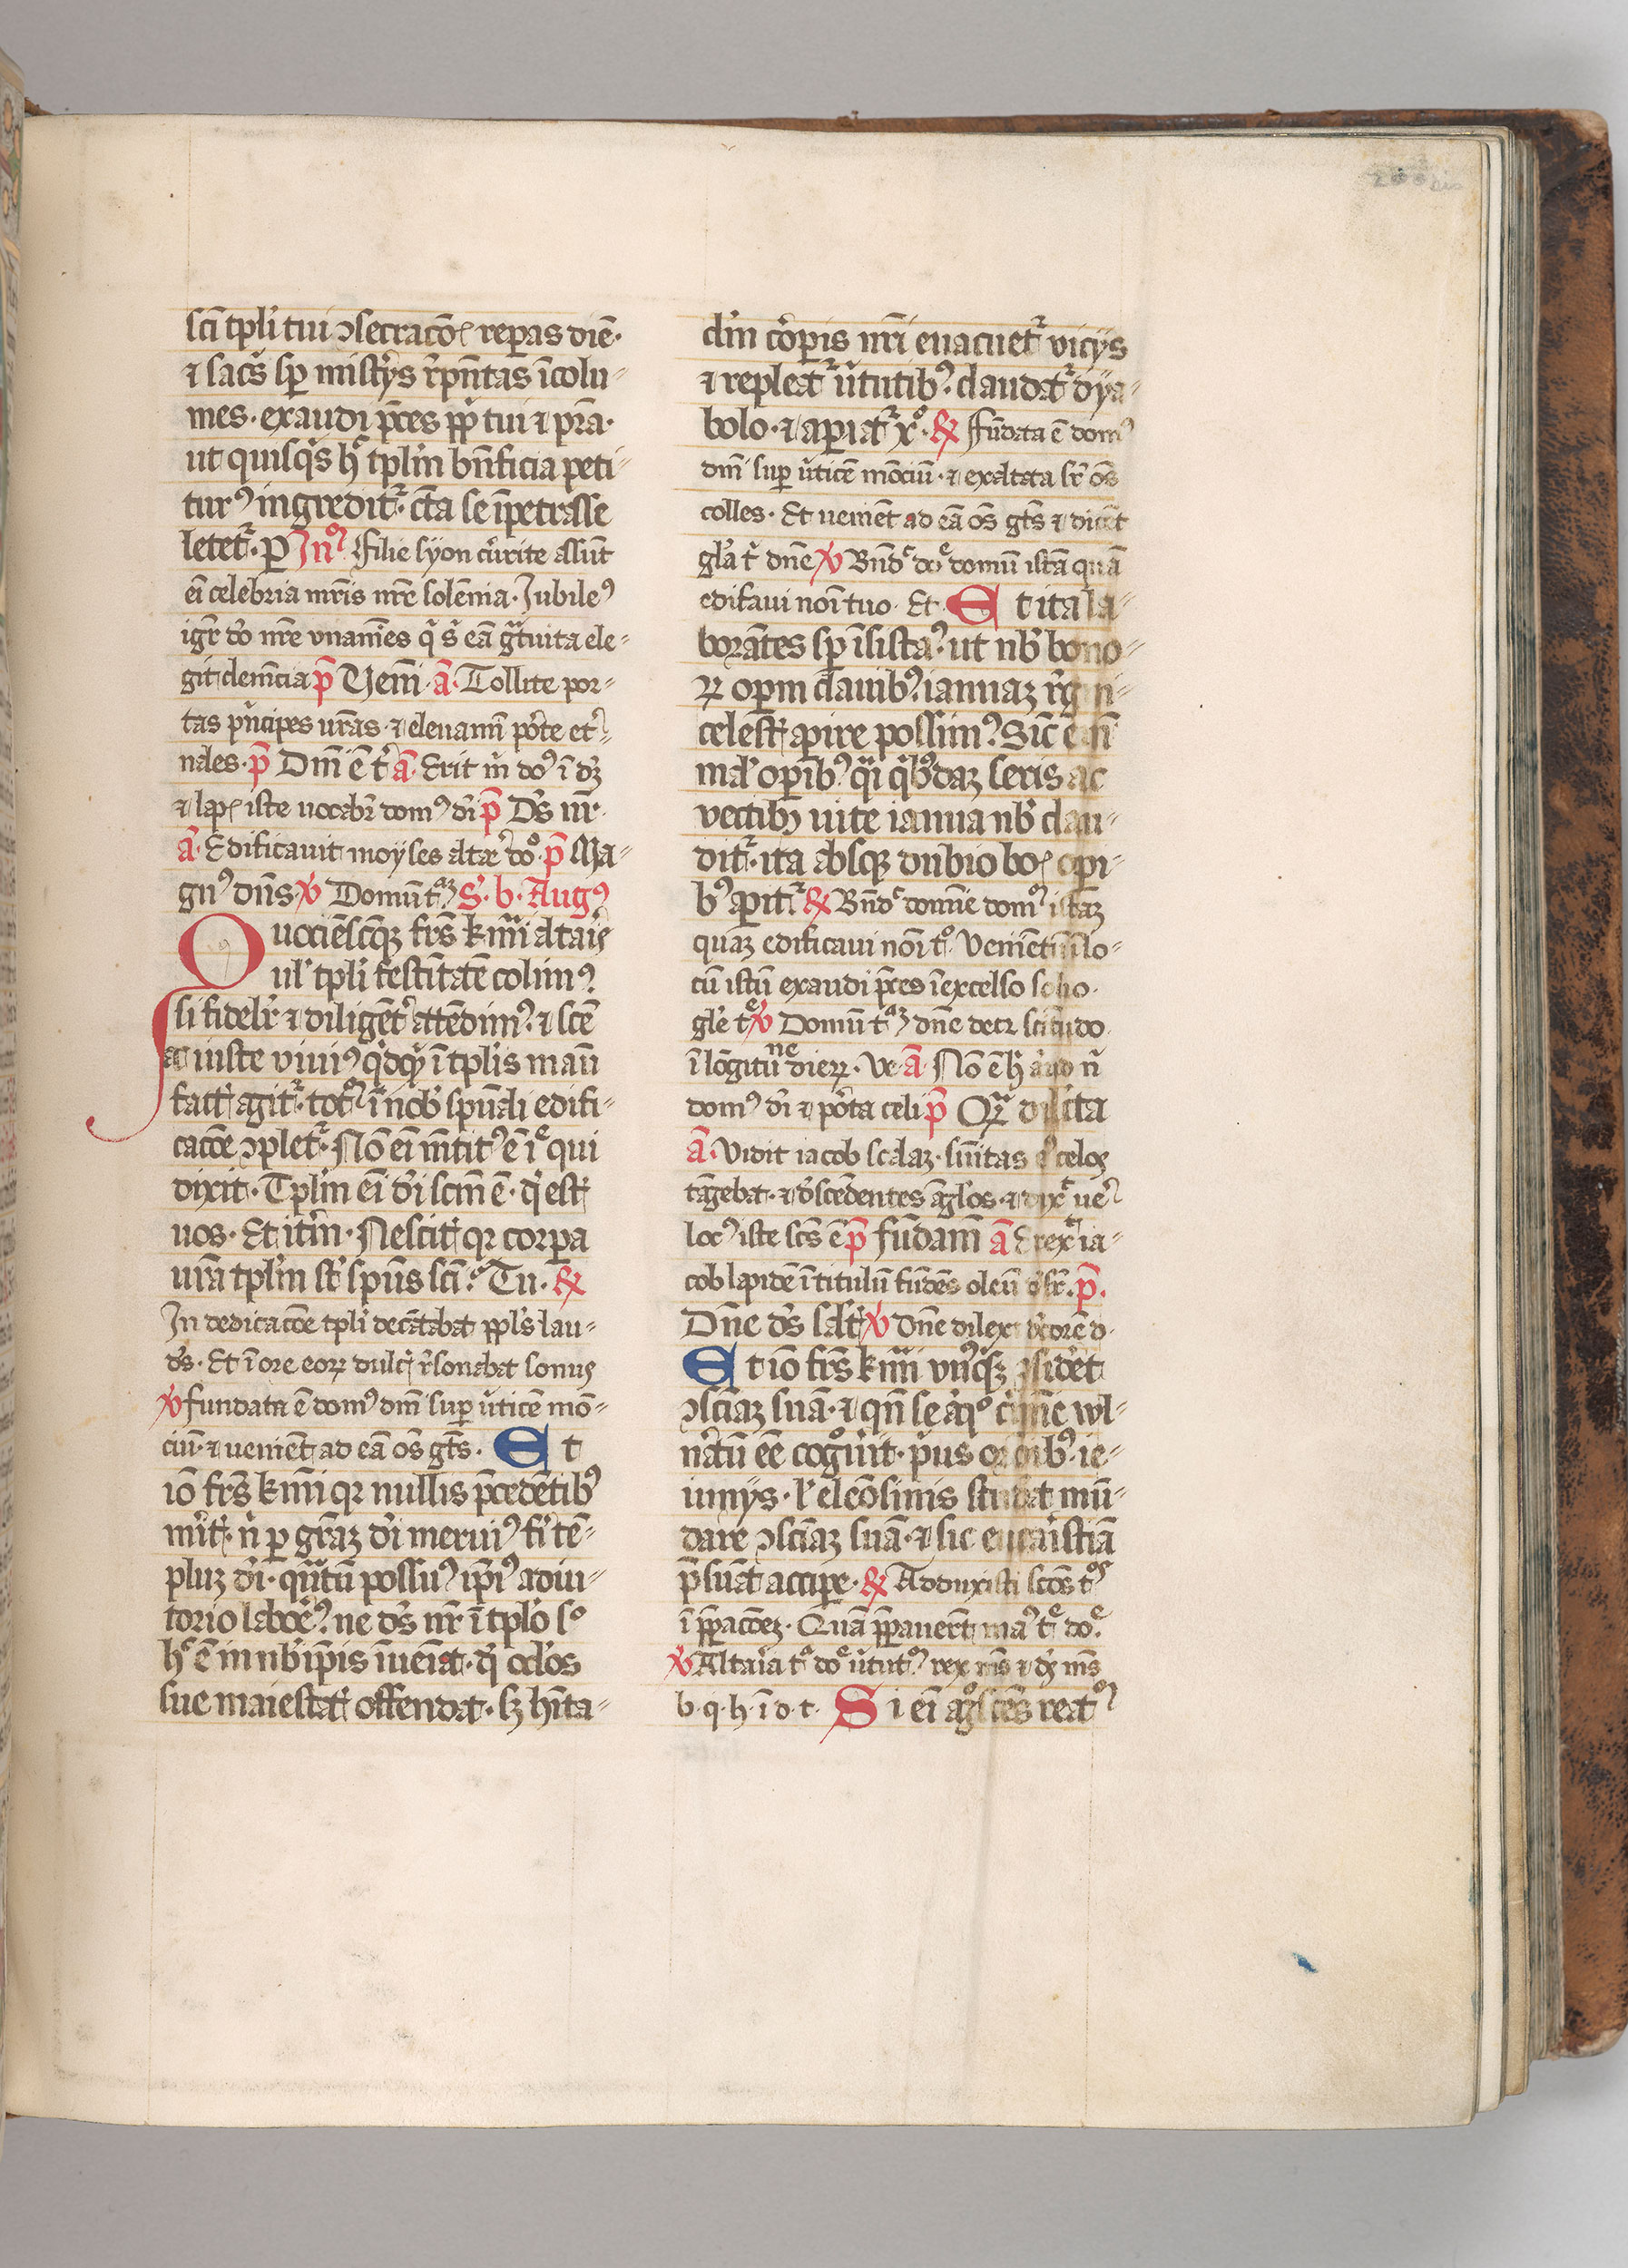 scī tpli tui ꝯsecracōe repas diē·
⁊ sacs̄ sp mistīys rp̄ntas īcolu-
mes· exaudi p̄ces ppl̄i tui ⁊ pr̄a·
ut quisqs̄ hͨ tplm̄ bn̄ficia peti-
turꝰ ingredit᷑· cc̄ta se īpetrasse
letet᷑· ꝑ Jnº Filie syon cu̇rite assūt
ei celebria mr̄is nr̄e solēnia· Jubilemꝰ
igr̄ dō nr̄e vnanīes q̄ s̄ eā gͣtuita ele-
git clemēcia p̄ Uenīt· ā· Tollite por-
tas pͥncipes urās· ⁊ eleuamī porte et̓-
nales· p̄ Dn̄i ē t᷑ ā· Erit m̄ doꝰ ī dꝫ
⁊ lapis iste uocabit᷑ domꝰ di p̄ Ds̄ nr̄·
ā· Edificauit moyses altare dº· p̄ Ma-
gnꝰ dn̄s ℣ Domū t᷑ S̓· b· Augꝰ
Quociēscūqꝫ frs̄ kmī altaris
ul̓ tpli festītatē colimꝰ·
si fideli᷑ ⁊ diligēt᷑ attēdimꝰ· ⁊ scē
ac iuste viuiꝰ qͥdqd̓ ī tplis manū
fact̓ agit᷑· totū ī nob̓ spūali edifi-
cacōe ꝯplet᷑· Nō ei mētitꝰ ē iͤ qui
dixit· Tplm̄ ei di scm̄ ē· qd̓ est̓
uos· Et itm̄· Nescit̓ qꝛ corpa
urā tplm̄ st̓ spūs scī·º Tu· ℟
Jn dedicacōe tpli decātabat ppls̄ lau-
dē· Et ī ore eoꝝ dulcis r̓sonabat sonus
℣ fundata ē domꝰ dn̄i sup u̓ticē mō-
ciū· ⁊ uenīet ad eā os̄ gt̄s· Et
iō frs̄ kmī qꝛ nullis p̄cedētibꝰ
mi̓t̓· n̄ p gr̄aꝫ di meruiꝰ fi̓ tē-
pluꝫ di· qͣtū possuꝰ ipīꝰ adiu-
torio laboreꝰ· ne ds̄ nr̄ ī tplo sº
hͨ ē in nb̓ ip̄is īueniat· qd̓ oclos
sue maiestat̓ offendat· sꝫ hīta-
dm̄ co̓pis nr̄i euacuet᷑ vicijs
⁊ repleat᷑ u̓tutibꝰ· claudat᷑ dya-
bolo· ⁊ apiat᷑ xº· ℟ Fūdata ē domꝰ
dn̄i sup u̓ticē mōciū· ⁊ exaltata sr̄ os̄
colles· Et uenīet ad eā os̄ gt̄s ⁊ dicēt
glā t̓ dn̄e ℣ Bn̄dͨ doͤ domū istā quā
edificaui noi tuo· Et· Et ita la-
borātes sp īsistaꝰ· ut nb̓ bono-
ꝝ opm clauibꝰ· iannaꝫ
celest̓ apire possimꝰ· Sic
mal̓ opibꝰ q̄i qͥbꝰdaꝫ seris ac
vectibꝫ uite ianua nb̓ clau-
dit᷑· ita absqꝫ dubio bois opi-
bꝰ apit᷑· ℟ Bn̄dͨ domine domꝰ istaꝫ
quaꝫ edificaui noi tº Veniētiū ī lo-
cū istū exaudi p̄ces ī excelso solio·
glē tͤ ℣ Domū tꝫ dn̄e decꝫ scitudo
ī lōgitudīne dieꝝ· Ve ā· Nō ē hͨ aliud n̄
domꝰ di ⁊ po̓ta celi p̄ Qͣ dilcta
ā· Vidit iacob scalaꝫ· sūitas eiꝰ celos
tāgebat· ⁊ dscēdentes āglos· ⁊ dixͭ uer̓
locꝰ iste scs̄ ē p̄ fūdam̄ ā Erexͭ ia-
cob lapidē ī titulū fūdēs oleū dsr̄· p̄·
Dn̄e ds̄ salut̓ ℣ Dn̄e dilexi decorē d·
Et iō frs̄ kmī vn̄qͥsqꝫ ꝯsidet
ꝯsciaꝫ suā· ⁊ qn̄ se aliqº cimīe vl-
n̓atū eē cognōuit· pͥus oroībꝰ· ie-
iunijs· l̓ elēosinis studeat mū-
dare ꝯsciaꝫ suā· ⁊ sic eucaristiā
p̄sumat accipe· ℟ Adduxisti scōs tºs
ī p̄paracōeꝫ· Quā p̄pauerūt manꝰ tͤ doͤ
℣ Altaria tº doͤ u̓tutū rex ms̄ ⁊ ds̄ ms̄
b· q· h· ī d· t· Si ei agºscēs reatū